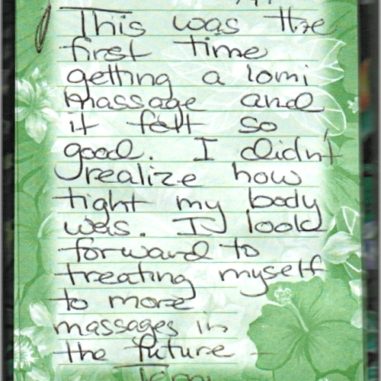 This was the
first time
getting a lomi
massage and
it felt so
good. I didn't
realize how
tight my body
was. I look
forward to
treating myself
to more
massages in
the future -